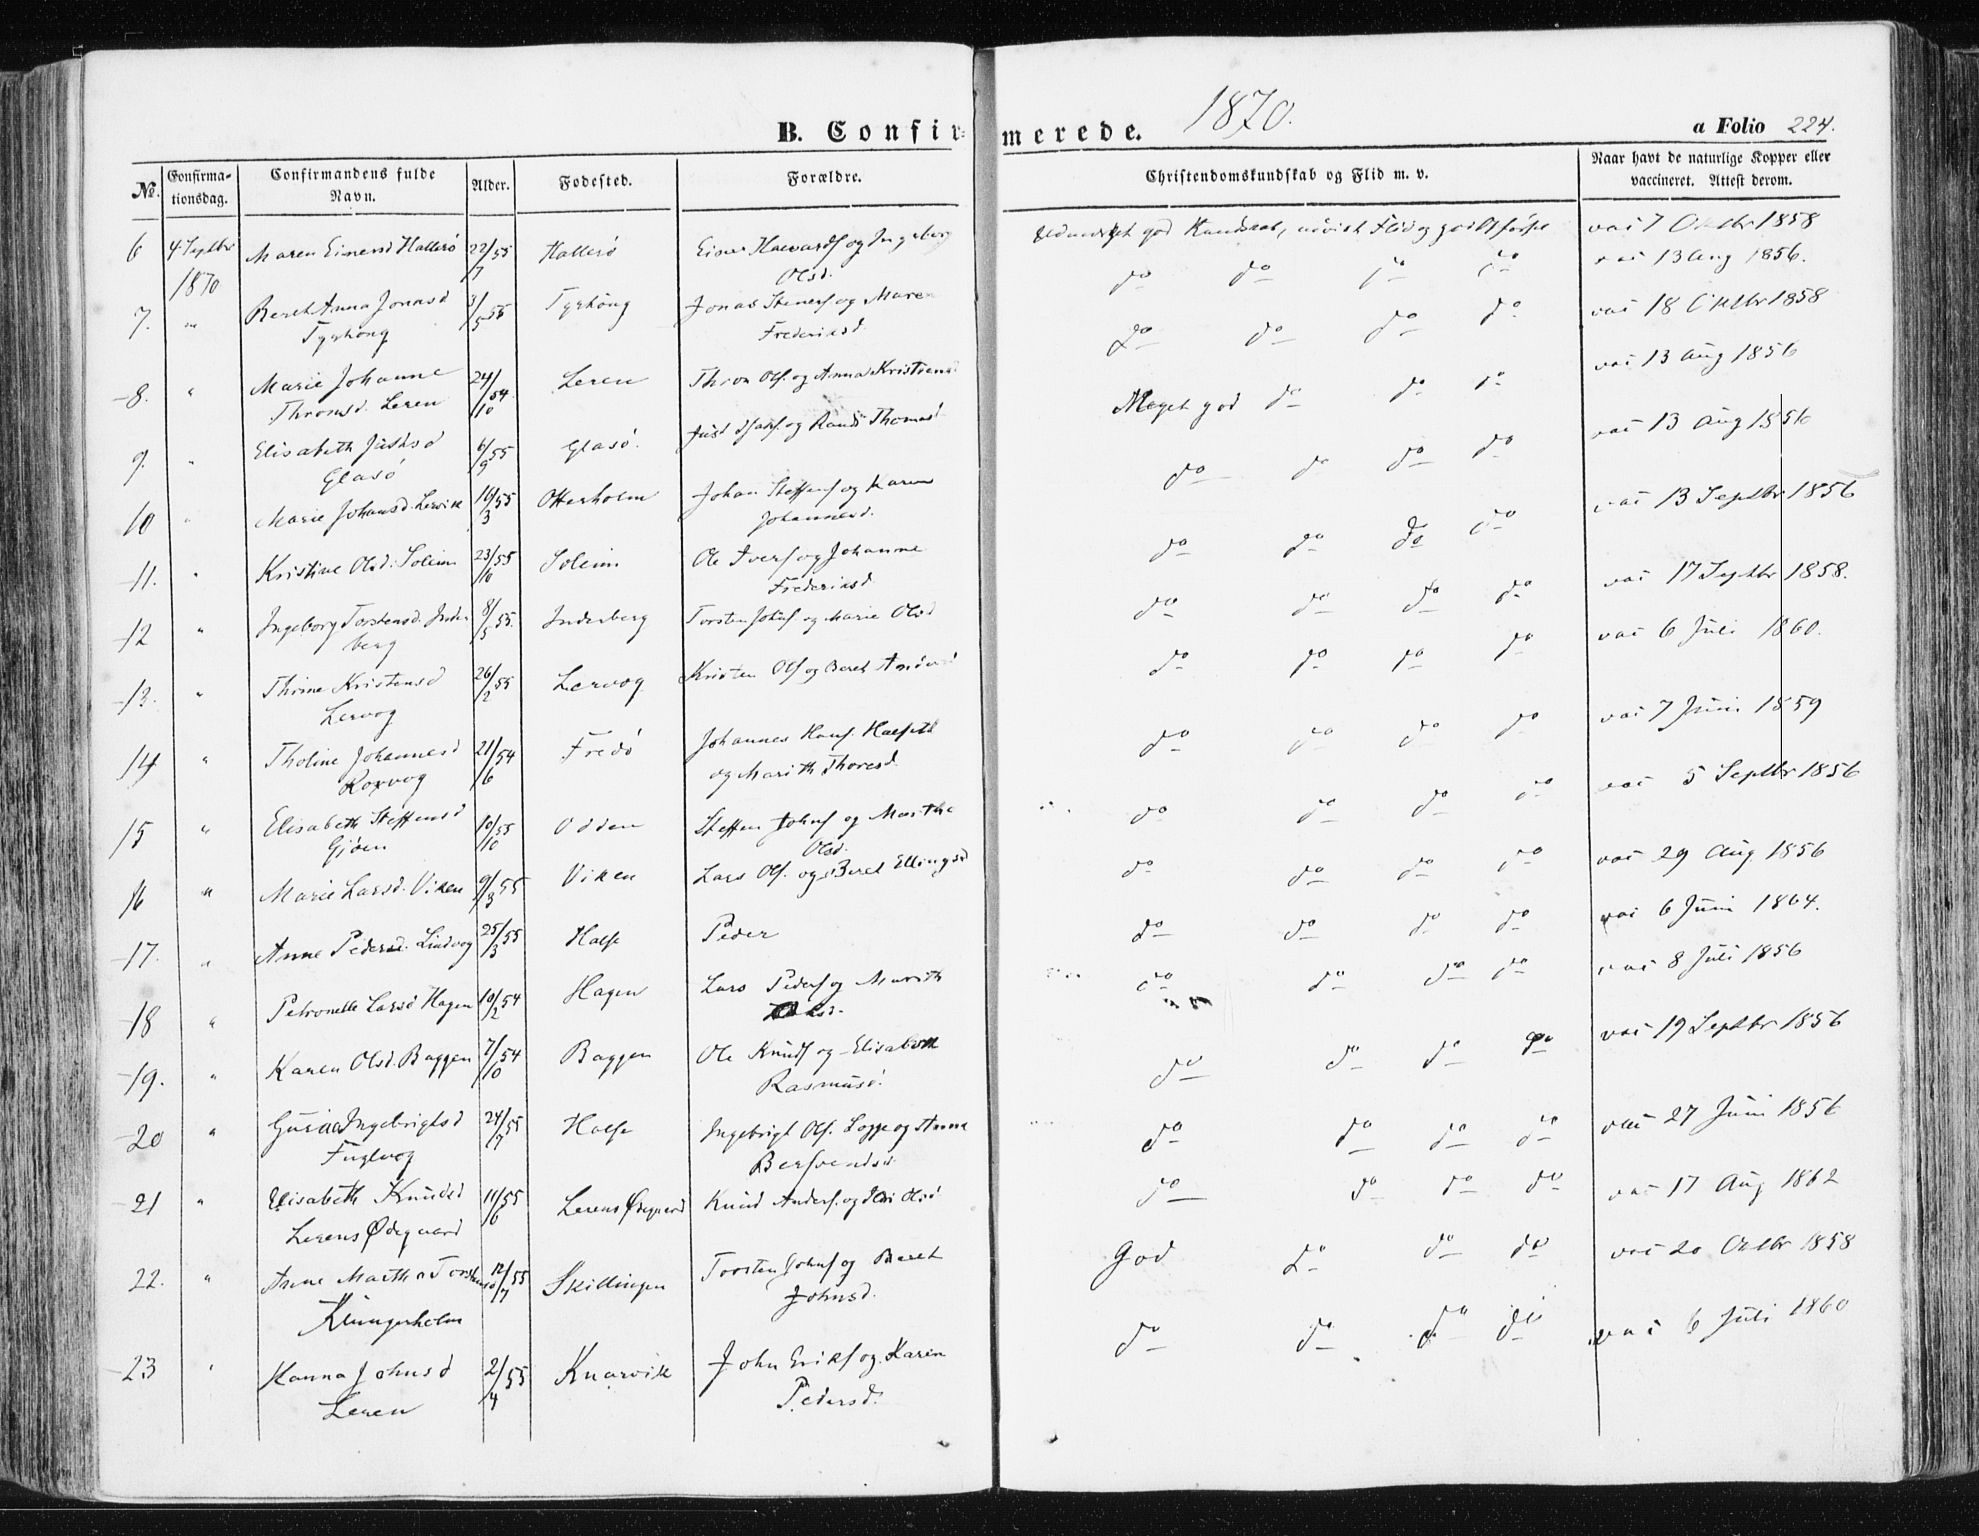 B. Confirmerede. 1870. a Folio 224.
№. Confirmationsdag. Confirmandens fulde Navn. Alder. Fødested. Forældre. Christendomskundskab og Flid m. v. Naar havt de naturlige Kopper eller vaccineret. Attest derom.
6 4 Septbr Maren Einersd Hallersø 22/7 55 Hallersø Einer Haavardf og Ingeborg god Kundskab, Flid og vac 7 Oktbr 1858
1870 Olsd. do do do do vac 13 Aug 1856.
7. " Beret Anna Jonasd 3/5 55 Tyrhöng Jonas Stenerf og Maren
Tyrhöng Frederiksd. do do do do vac 18 Oktbr 1858
8. " Marie Johanne 24/10 54 Leren Thron Olf. og Anna Kristiensd vac 13 Aug 1856
Thronsd. Leren Meget god do do do
9. " Elisabeth Justsd 6/9 55 Glasö. Just og Randi Thomasd vac 13 Aug 1856
Glasö do do do do
10 " Marie Johansd. Lervik 16/3 55 Otterholm Johan Steffenf og Karen vac 13 Septbr 1856
Johannesd. do do do do
11. " Kristine Olsd. Soleim 23/10 55 Soleim Ole Iverf og Johanne
Frederiksd. do do do do vac 17 Septbr 1858.
12 " Ingeborg Torstensd. Inder 8/5 55. Inderberg Torsten Johnf og Marie Olsd vac 6 Juli 1860.
berg do do do do
13. " Thrine Kristensd 26/2 55 Lervog Kristen Olf og Beret Andersd
Lervog do do do do vac 7 Juni 1859
14 " Tholine Johannesd 21/6 54 Fredö Johannes Hanf. Halseth
Korvog og Marith Thoresd. do do do do vac 5 Septbr 1856
15 " Elisabeth Steffensd 10/10 55 Odden Steffen Johnf og Marthe
Gjöen Olsd. do do do do vac 29 Aug 1856
16 " Marie Larsd. Viken 9/3 55 Viken Lars Olf. og Beret Ellingsd
17. " Anne Pedersd. Lindvog 25/3 55 Halse Peder do do do do vac 6 Juni 1864.
18 " Petronelle Larsd Hagen 10/2 54 Hagen Lars Pederf og Marith do do do do vac 8 Juli 1856
19. " Karen Olsd. Baggen 7/10 54 Baggen Ole Knudf og Elisabeth vac 19 Septbr 1856
Rasmusd. do do do do
20 " Guria Ingebrigtsd 24/7 55 Halse Ingebrigt Olf. Sogge og Anna do do do do vac 27 Juni 1856
Fuglvog Bersvendsd.
21 " Elisabeth Knudsd 11/6 55 Lerens Ødegaard Knud Anderf. og do do do do vac 17 Aug 1862
Lerens Ødegaard
22. " Anne Martha Torstensd 12/7 55 Skillingen Torsten Johnf og Beret God do do do vac 20 Octbr 1858
Klingerholm Johnsd.
23 " Hanna Johnsd 2/4 55 Knarvik John Erikf og Karen do do do do vac 6 Juli 1860
Leren Pedersd.